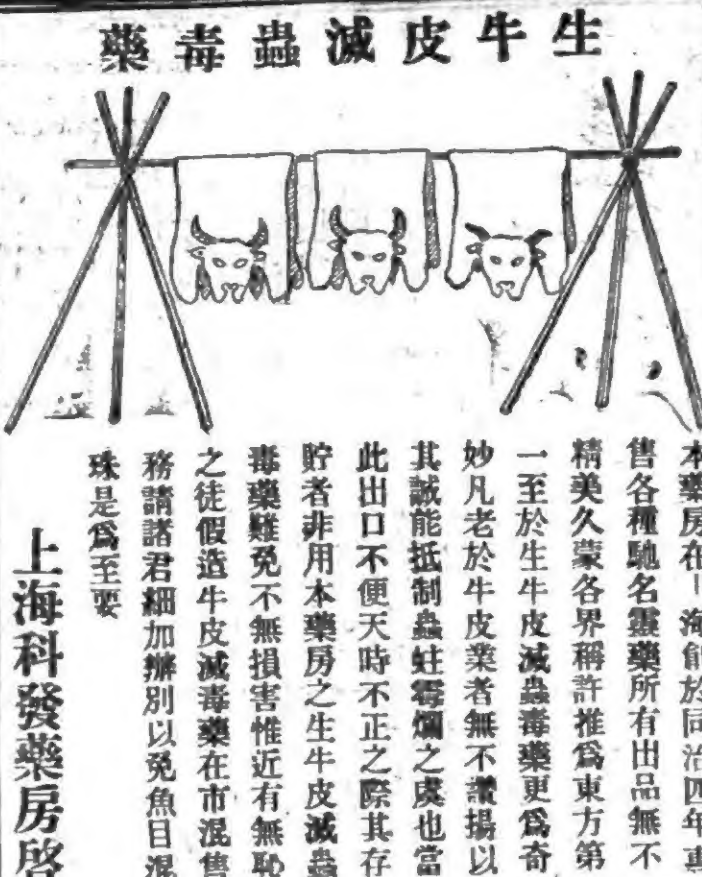 生牛皮滅蟲毒藥
本藥房在上海創於同治四年專
售各種馳名靈藥所有出品無不
精美久蒙各界稱許推爲東方第
一至於生牛皮滅蟲毒藥更爲奇
妙凡老於牛皮業者無不讚揚以
其誠能抵制蟲蛀霉爛之虞也當
此出口不便天時不正之際其存
貯者非用本藥房之生牛皮滅蟲
毒藥難免不無損害惟近有無恥
之徒假造牛皮滅毒藥在市混售
務請諸君細加辦別以免魚目混
珠是爲至要
上海科發藥房啓